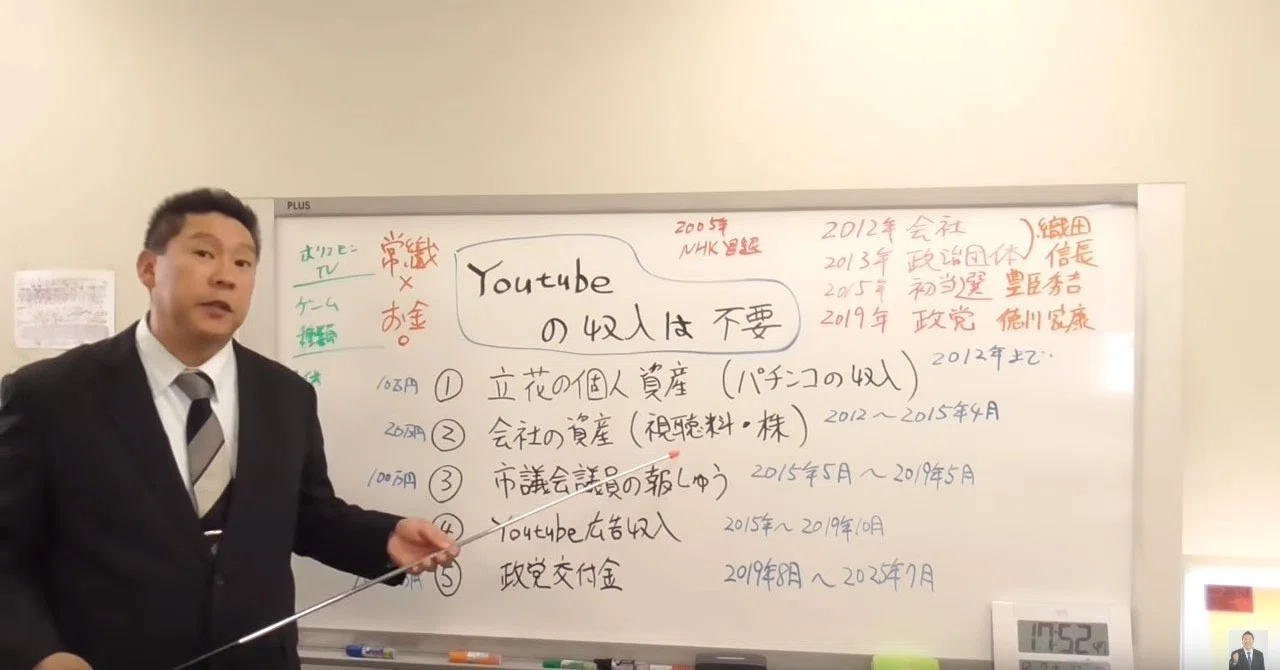 PLUS
ホリエモン
TV
ゲーム
種類
常識
×
お金
Youtube
の収入は不要
2005年
NHK
2012年 会社
2013年 政治団体
織田
信長
2015年 初当選 豊臣秀吉
2019年 政党 徳川家康
10万円 ① 立花の個人資産 (パチンコの収入) 2012年まで
20万円 ② 会社の資産 (視聴料・株) 2012～2015年4月
100万円 ③ 市議会議員の報しゅう 2015年5月～2019年5月
④ Youtube広告収入 2015年～2019年10月
⑤ 政党交付金 2019年8月～2025年7月
17:52